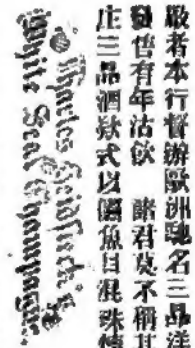 敬者本行督辦歐洲馳名三品洋
售有年沽飲 諸君莫不稱其
庄三品酒欵式以圖魚目混珠情
Charles Heidsieck's
White Seal Champagne